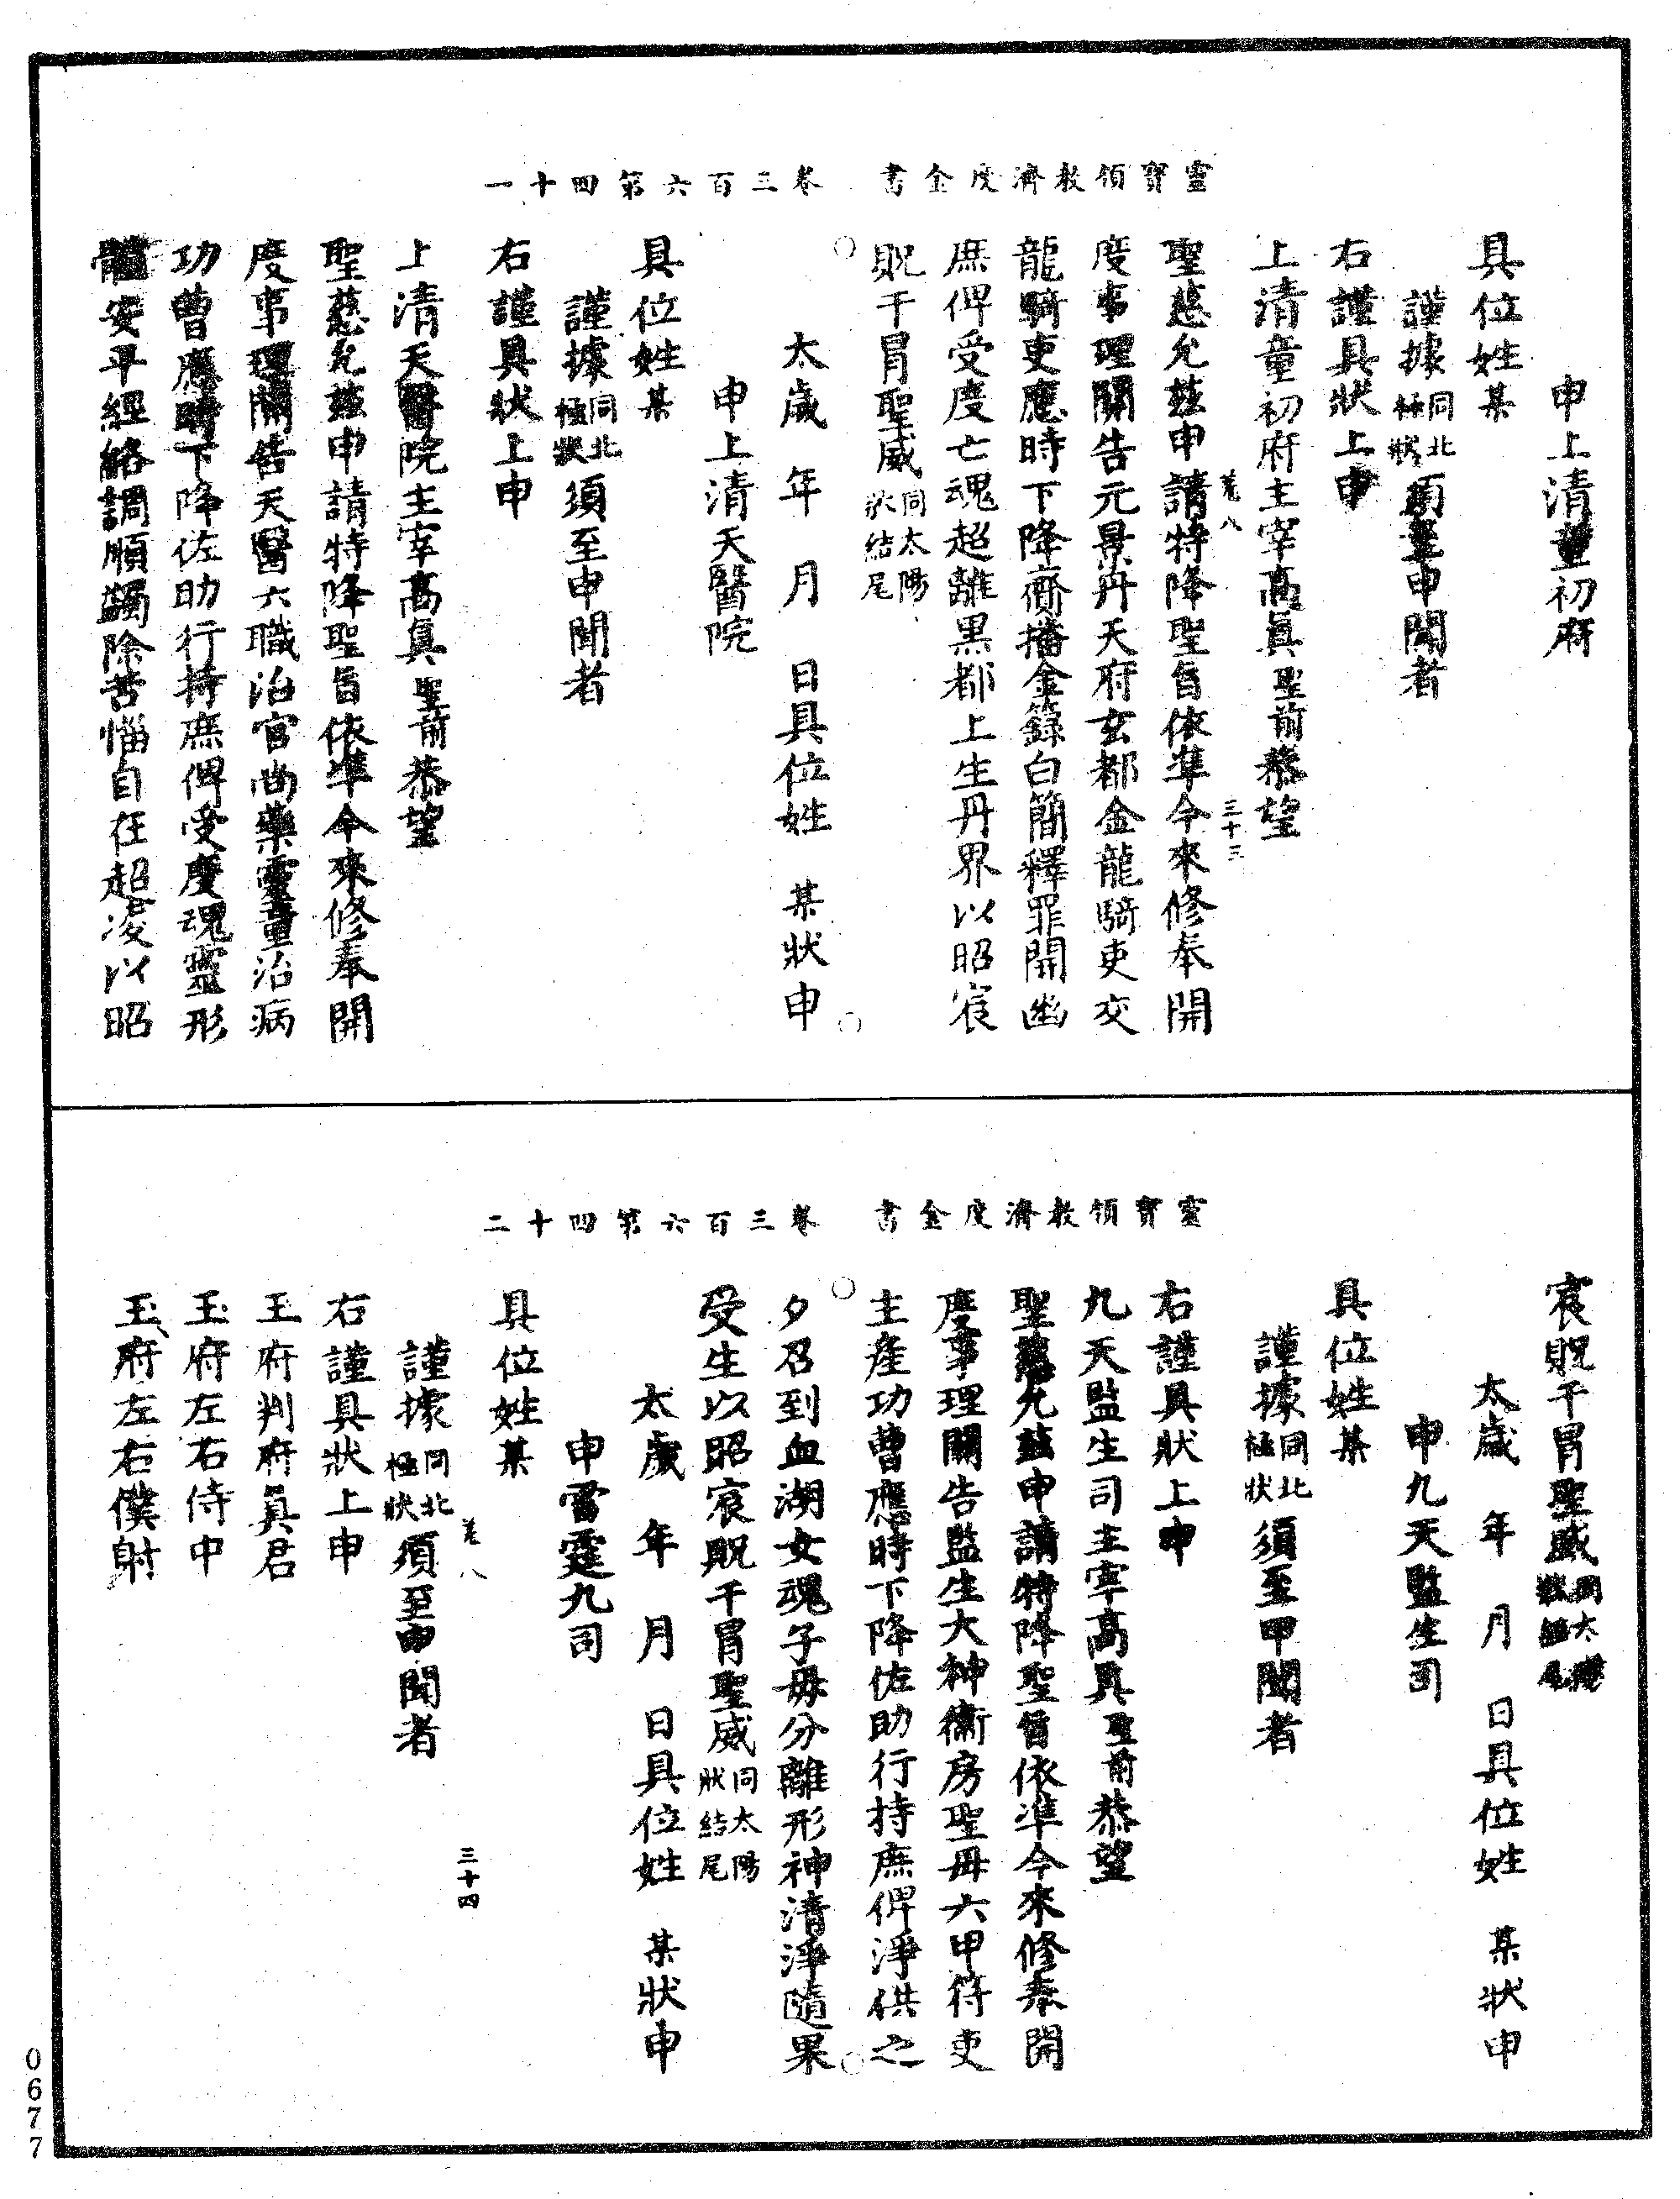 靈寶領教濟度金書　卷三百六第四十一
申上清童初府
具位姓某
謹據同北極狀須至申聞者
右謹具狀上申
上清童初府主宰高眞聖前恭望
菟八　三十三
聖慈允茲申請特降聖旨依準今來修奉開
度事理關告元景丹天府玄都金龍騎吏交
龍騎吏應時下降齎播金籙白簡釋罪開幽
庶俾受度亡魂超離黑都上生丹界以昭宸
貺干冒聖威同太陽狀結尾
太歲　年　月　日具位姓　某狀申
申上清天醫院
具位姓某
謹據同北極狀須至申聞者
右謹具狀上申
上清天醫院主宰高眞聖前恭望
聖慈允茲申請特降聖旨依準今來修奉開
度事理關告天醫六職治官尚藥靈童治病
功曹應時下降佐助行持庶俾受度魂靈形
體安平經絡調順蠲除苦惱自在超凌以昭
靈寶領教濟度金書　卷三百六第四十二
宸貺干冒聖威同太陽狀結尾
太歲　年　月　日具位姓　某狀申
申九天監生司
具位姓某
謹據同北極狀須至申聞者
右謹具狀上申
九天監生司主宰高眞聖前恭望
聖慈允茲申請特降聖旨依準今來修奉開
度事理關告監生大神衞房聖母六甲符吏
主產功曹應時下降佐助行持庶俾淨供之
夕召到血湖女魂子母分離形神清淨隨果
受生以昭宸貺干冒聖威同太陽狀結尾
太歲　年　月　日具位姓　某狀申
申雷霆九司
具位姓某
菟八　三十四
謹據同北極狀須至申聞者
右謹具狀上申
玉府判府眞君
玉府左右侍中
玉府左右僕射
0677